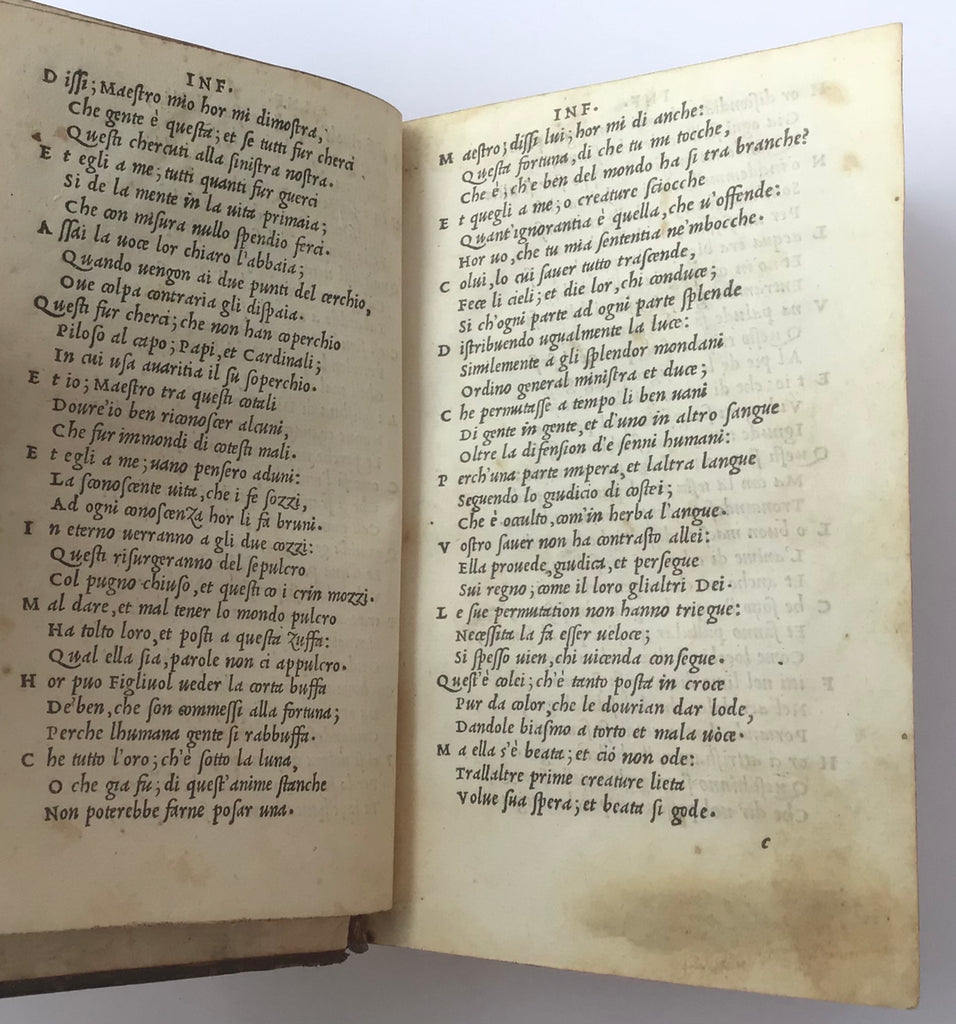 INF.
D issi; Maestro mio hor mi dimostra,
Che gente è questa; et se tutti fur cherci
Questi chercuti alla sinistra nostra.
E t egli a me; tutti quanti fur guerci
Si de la mente in la uita primaia;
Che con misura nullo spendio ferci.
A ssai la uoce lor chiaro l'abbaia;
Quando uengon ai due punti del cerchio,
Oue colpa contraria gli dispaia.
Questi fur cherci; che non han coperchio
Piloso al capo; Papi, et Cardinali;
In cui usa auaritia il su soperchio.
E t io; Maestro tra questi cotali
Doure'io ben riconoscer alcuni,
Che fur immondi di cotesti mali.
E t egli a me; uano pensero aduni:
La sconoscente uita, che i fe sozzi,
Ad ogni conoscenza hor li fa bruni.
I n eterno uerranno a gli due cozzi:
Questi risurgeranno del sepulcro
Col pugno chiuso, et questi co i crin mozzi.
M al dare, et mal tener lo mondo pulcro
Ha tolto loro, et posti a questa zuffa:
Qual ella sia, parole non ci appulcro.
H or puo Figliuol ueder la corta buffa
De'ben, che son commessi alla fortuna;
Perche lhumana gente si rabbuffa.
C he tutto l'oro; ch'è sotto la luna,
O che gia fu; di quest'anime stanche
Non poterebbe farne posar una.
INF.
M aestro; dissi lui; hor mi di anche:
Questa fortuna, di che tu mi tocche,
Che è; ch'e ben del mondo ha si tra branche?
E t quegli a me; o creature sciocche
Quant'ignorantia è quella, che u'offende:
Hor uo, che tu mia sententia ne'mbocche.
C olui, lo cui sauer tutto trascende,
Fece li cieli; et die lor, chi conduce;
Si ch'ogni parte ad ogni parte splende
D istribuendo ugualmente la luce:
Similemente a gli splendor mondani
Ordino general ministra et duce;
C he permutasse a tempo li ben uani
Di gente in gente, et d'uno in altro sangue
Oltre la difension d'e senni humani:
P erch'una parte impera, et laltra langue
Seguendo lo giudicio di costei;
Che è occulto, com'in herba l'angue.
V ostro sauer non ha contrasto allei:
Ella prouede, giudica, et persegue
Sui regno; come il loro glialtri Dei.
L e sue permutation non hanno triegue:
Necessita la fa esser ueloce;
Si spesso uien, chi uicenda consegue.
Quest'è colei; ch'è tanto posta in croce
Pur da color, che le dourian dar lode,
Dandole biasmo a torto et mala uoce.
M a ella s'è beata; et ciò non ode:
Trallaltre prime creature lieta
Volue sua spera; et beata si gode.
c